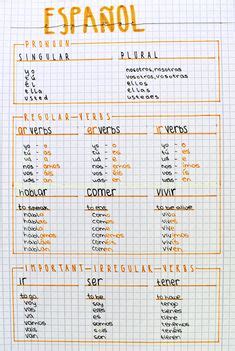 ESPAÑOL
PRONOUN
SINGULAR PLURAL
yo nosotros, nosotras
tú vosotros, vosotras
él ellos
ella ellas
usted ustedes
REGULAR-VERBS
ar verbs er verbs ir verbs
yo - o yo - o yo - o
tú - as tú - es tú - es
- a - e - e
- amos - emos - imos
- áis - éis - ís
- an - en - en
hablar comer vivir
to speak to eat to be alive
hablo como vivo
hablas comes vives
habla come vive
hablamos comemos vivimos
habláis coméis vivís
hablan comen viven
IMPORTANT-IRREGULAR-VERBS
ir ser tener
to go to be to have
voy soy tengo
vas eres tienes
va es tiene
vamos somos tenemos
vais sois tenéis
van son tienen